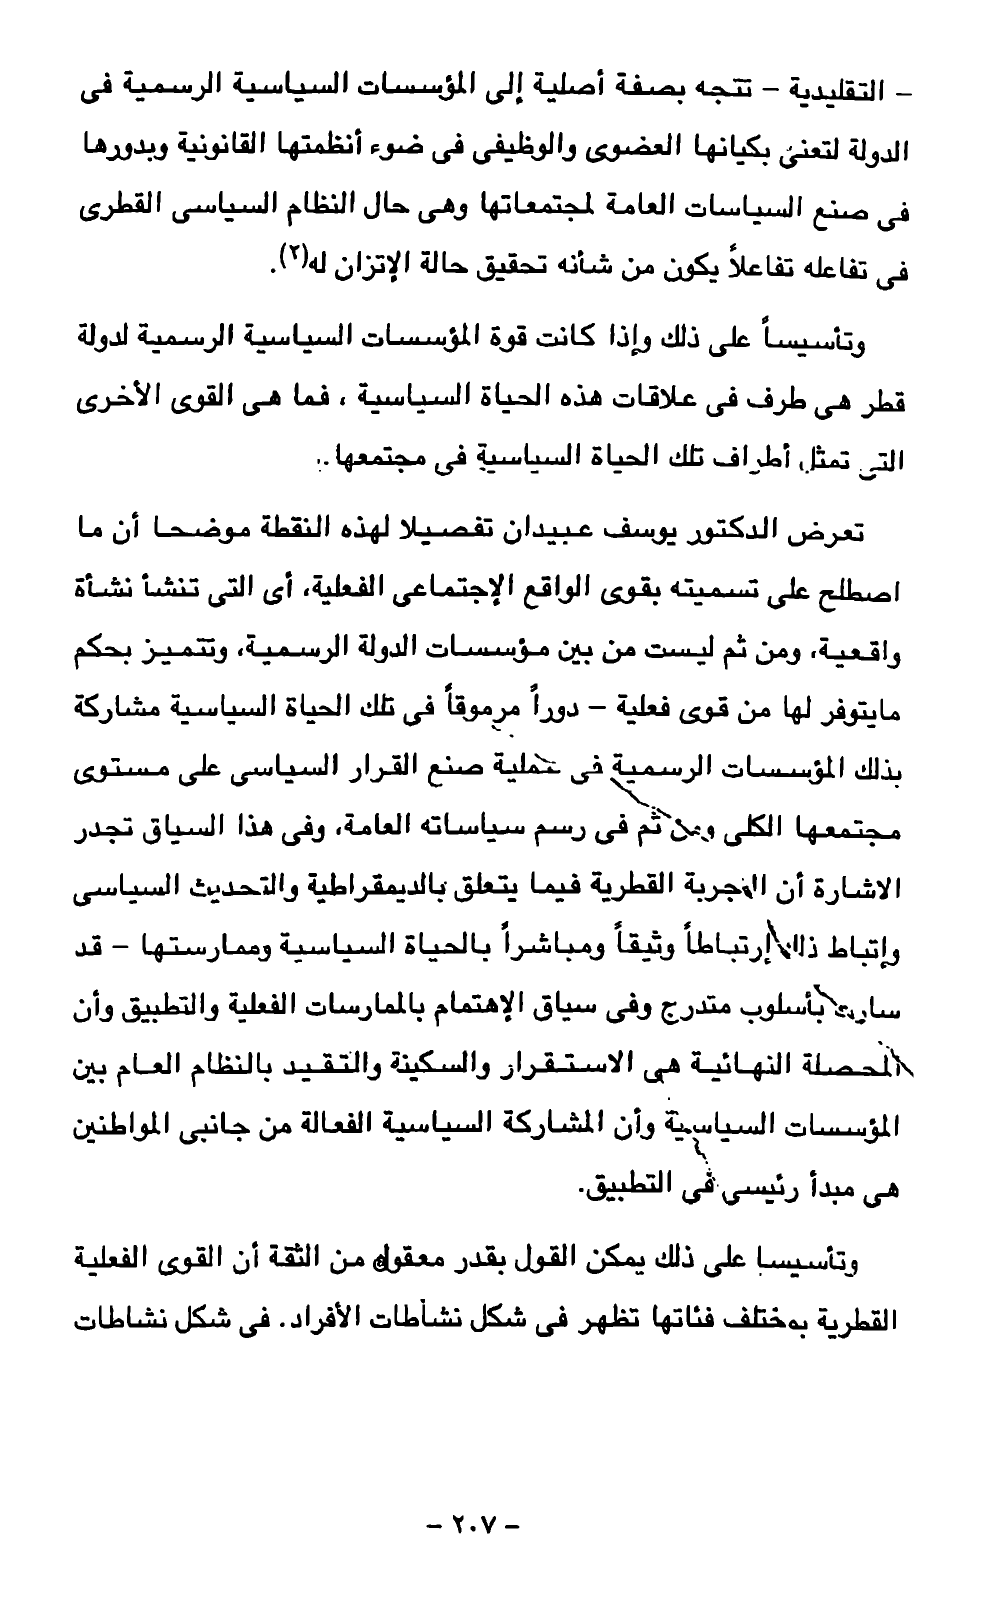 – التقليدية – تتجه بصفة أصلية إلى المؤسسات السياسية الرسمية فى
الدولة لتعنى بكيانها العضوى والوظيفى فى ضوء أنظمتها القانونية وبدورها
فى صنع السياسات العامة لمجتمعاتها وهى حال النظام السياسى القطرى
فى تفاعله تفاعلاً يكون من شأنه تحقيق حالة الإتزان له(٢).
وتأسيساً على ذلك وإذا كانت قوة المؤسسات السياسية الرسمية لدولة
قطر هى طرف فى علاقات هذه الحياة السياسية ، فما هى القوى الأخرى
التى تمثل أطراف تلك الحياة السياسية فى مجتمعها ..
تعرض الدكتور يوسف عبيدان تفصيلا لهذه النقطة موضحا أن ما
اصطلح على تسميته بقوى الواقع الإجتماعى الفعلية، أى التى تنشأ نشأة
واقعية، ومن ثم ليست من بين مؤسسات الدولة الرسمية، وتتميز بحكم
مايتوفر لها من قوى فعلية – دوراً مرموقاً فى تلك الحياة السياسية مشاركة
بذلك المؤسسات الرسمية فى عملية صنع القرار السياسى على مستوى
مجتمعها الكلى ومن ثم فى رسم سياساته العامة، وفى هذا السياق تجدر
الاشارة أن التجربة القطرية فيما يتعلق بالديمقراطية والتحديث السياسى
وإتباط ذلك إرتباطاً وثيقاً ومباشراً بالحياة السياسية وممارستها – قد
سارت بأسلوب متدرج وفى سياق الإهتمام بالممارسات الفعلية والتطبيق وأن
المحصلة النهائية هى الاستقرار والسكينة والتقيد بالنظام العام بين
المؤسسات السياسية وأن المشاركة السياسية الفعالة من جانبى المواطنين
هى مبدأ رئيسى فى التطبيق.
وتأسيسا على ذلك يمكن القول بقدر معقول من الثقة أن القوى الفعلية
القطرية بمختلف فئاتها تظهر فى شكل نشاطات الأفراد. فى شكل نشاطات
– ٢٠٧ –